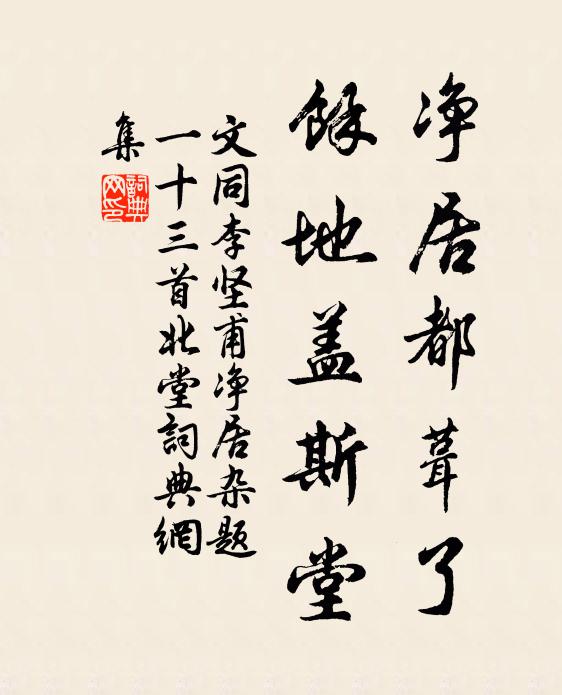 净居都葺了
馀地盖斯堂
文同李坚甫净居杂题
一十三首北堂詞典網
集
詞典网印